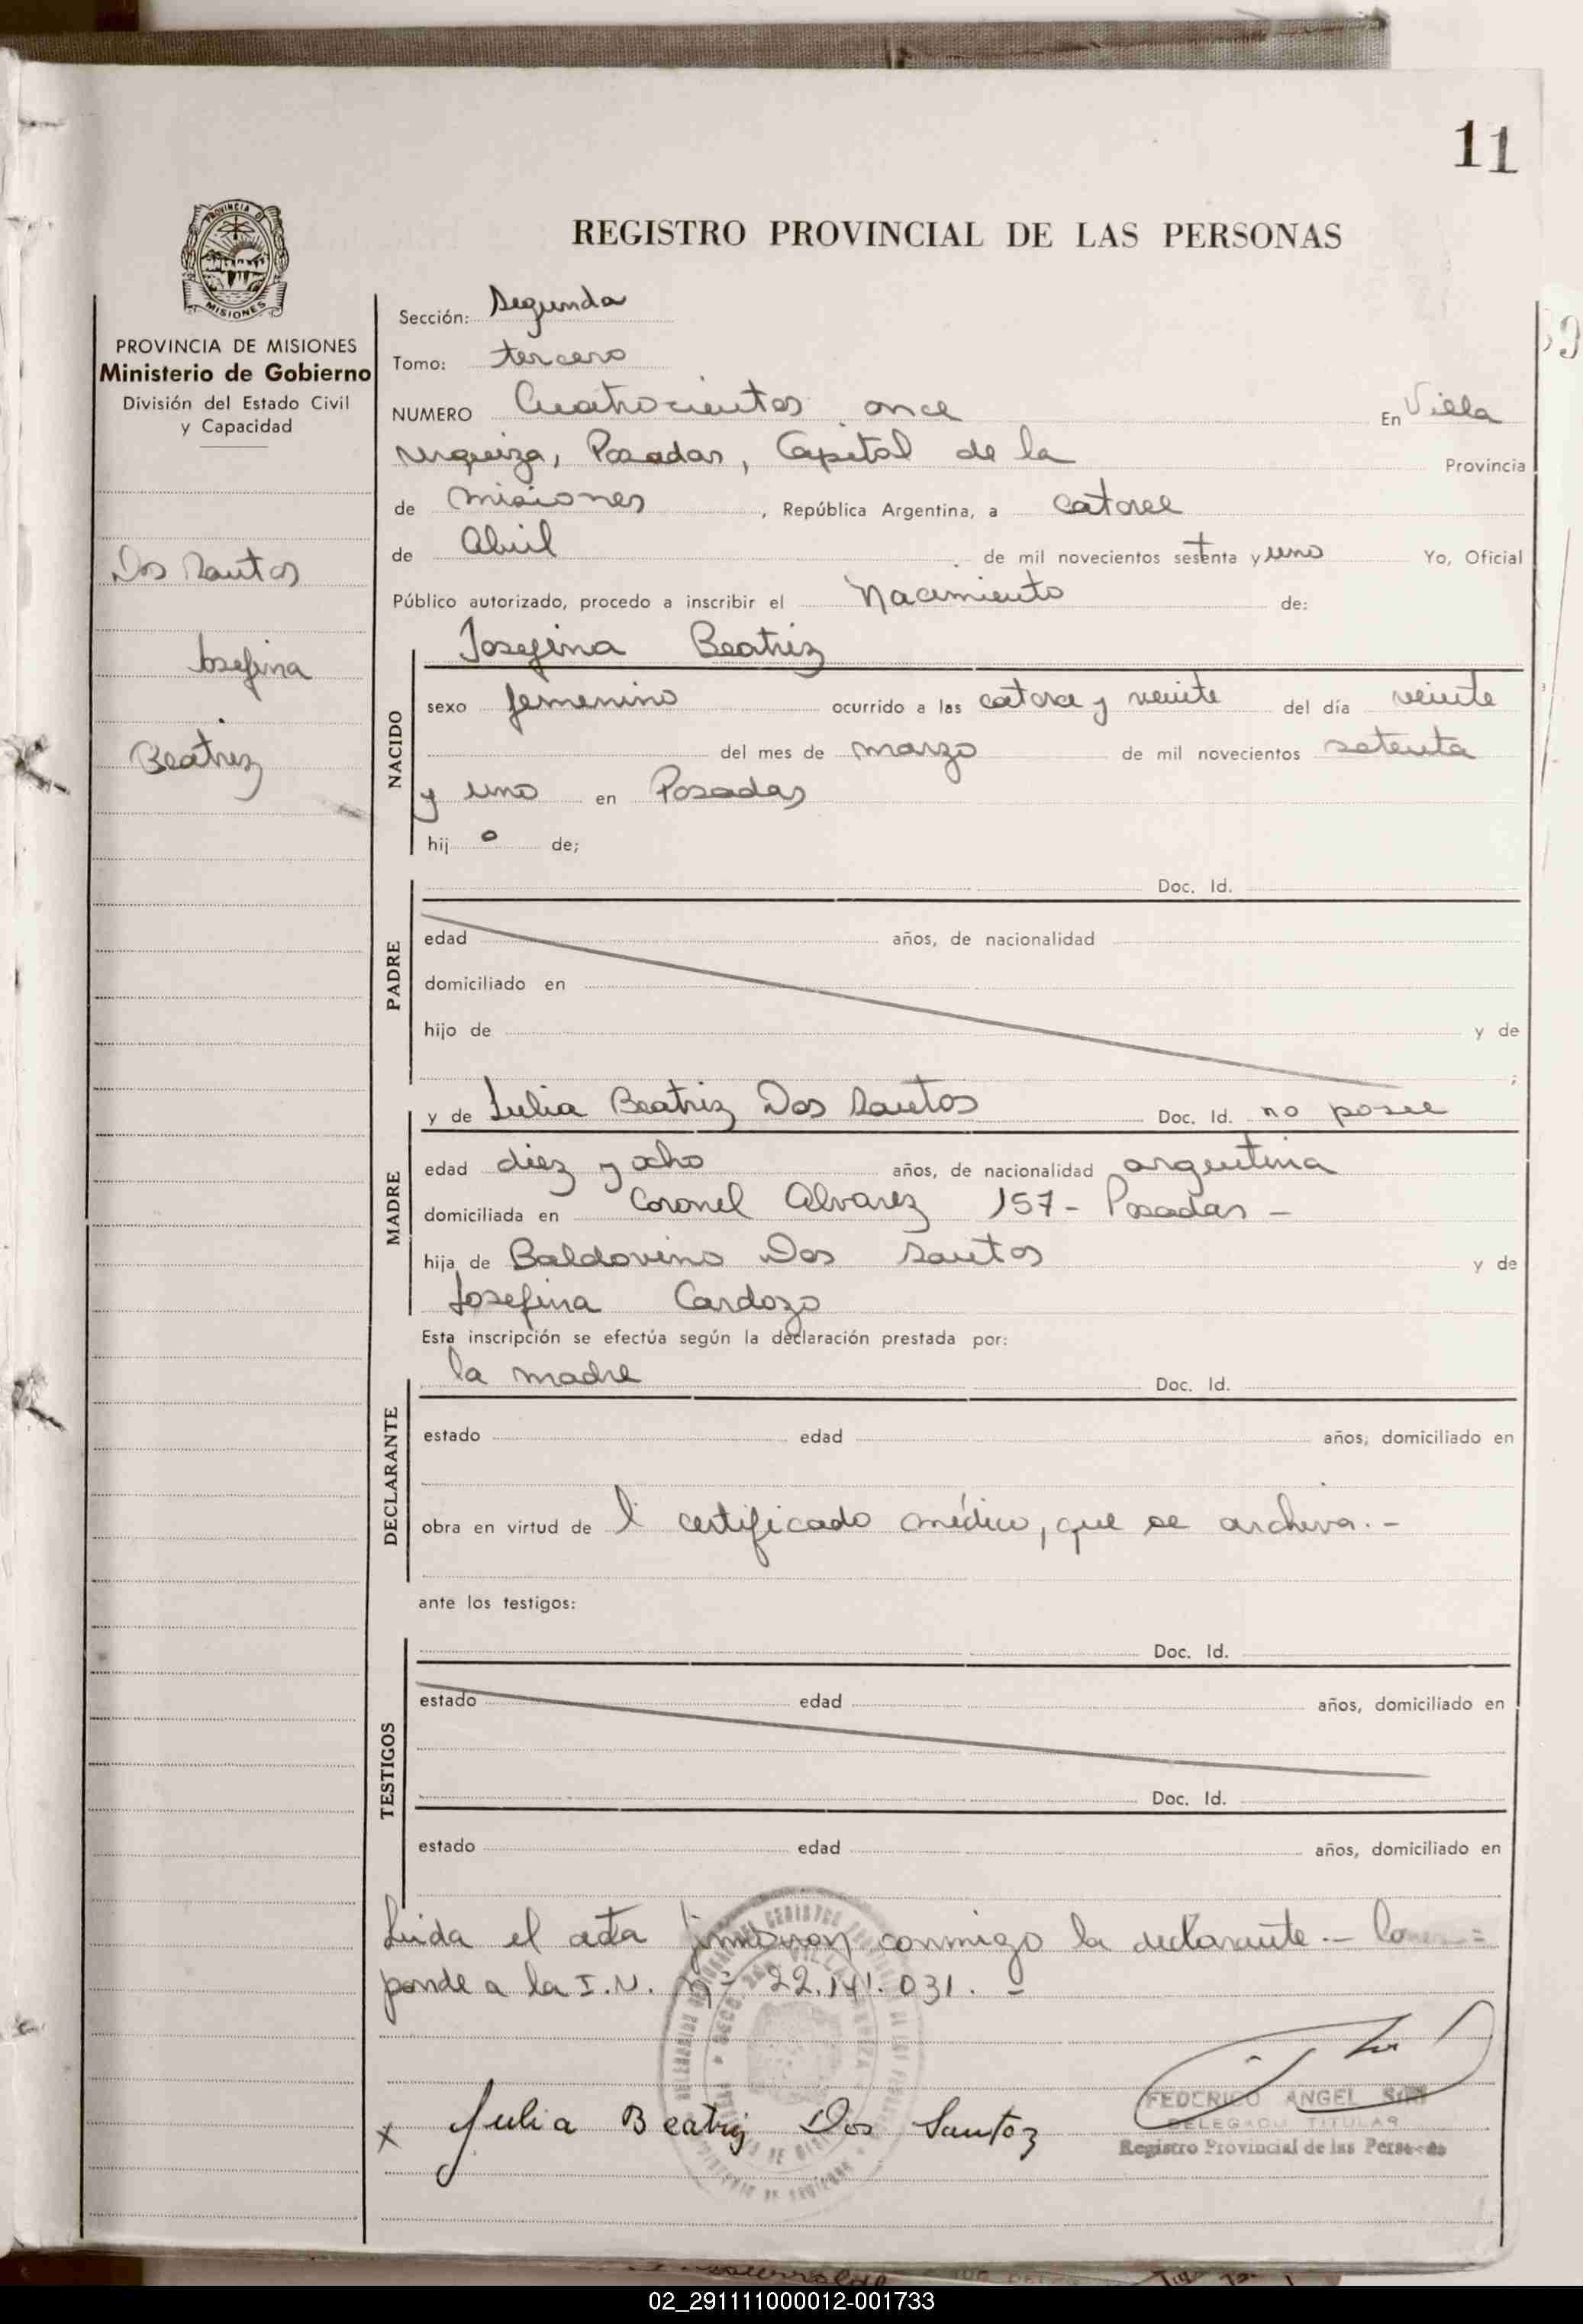 11
PROVINCIA DE
MISIONES
PROVINCIA DE MISIONES
Ministerio de Gobierno
División del Estado Civil
y Capacidad
Dos Santos
Josefina
Beatriz
REGISTRO PROVINCIAL DE LAS PERSONAS
Sección: Segunda
Tomo: tercero
NUMERO Cuatrocientos once En Villa
Urquiza, Posadas, Capital de la Provincia
de Misiones, República Argentina, a catorce
de Abril de mil novecientos setenta y uno Yo, Oficial
Público autorizado, procedo a inscribir el Nacimiento de:
Josefina Beatriz
NACIDO
sexo femenino ocurrido a las catorce y veinte del día veinte
del mes de marzo de mil novecientos setenta
y uno en Posadas
hij a de;
PADRE
Doc. Id.
edad años, de nacionalidad
domiciliado en
hijo de y de
;
MADRE
y de Julia Beatriz Dos Santos Doc. Id. no posee
edad diez y ocho años, de nacionalidad argentina
domiciliada en Coronel Alvarez 157 - Posadas -
hija de Baldovino Dos Santos y de
Josefina Cardozo
Esta inscripción se efectúa según la declaración prestada por:
DECLARANTE
la madre Doc. Id.
estado edad años, domiciliado en
obra en virtud de l certificado médico, que se archiva.-
ante los testigos:
TESTIGOS
Doc. Id.
estado edad años, domiciliado en
Doc. Id.
estado edad años, domiciliado en
Leida el acta firmaron conmigo la declarante.-
ponde a la I.N. nº 22.141.031. -
x Julia Beatriz Dos Santoz
FEDERICO ANGEL
DELEGADO TITULAR
Registro Provincial de las Personas
02_291111000012-001733